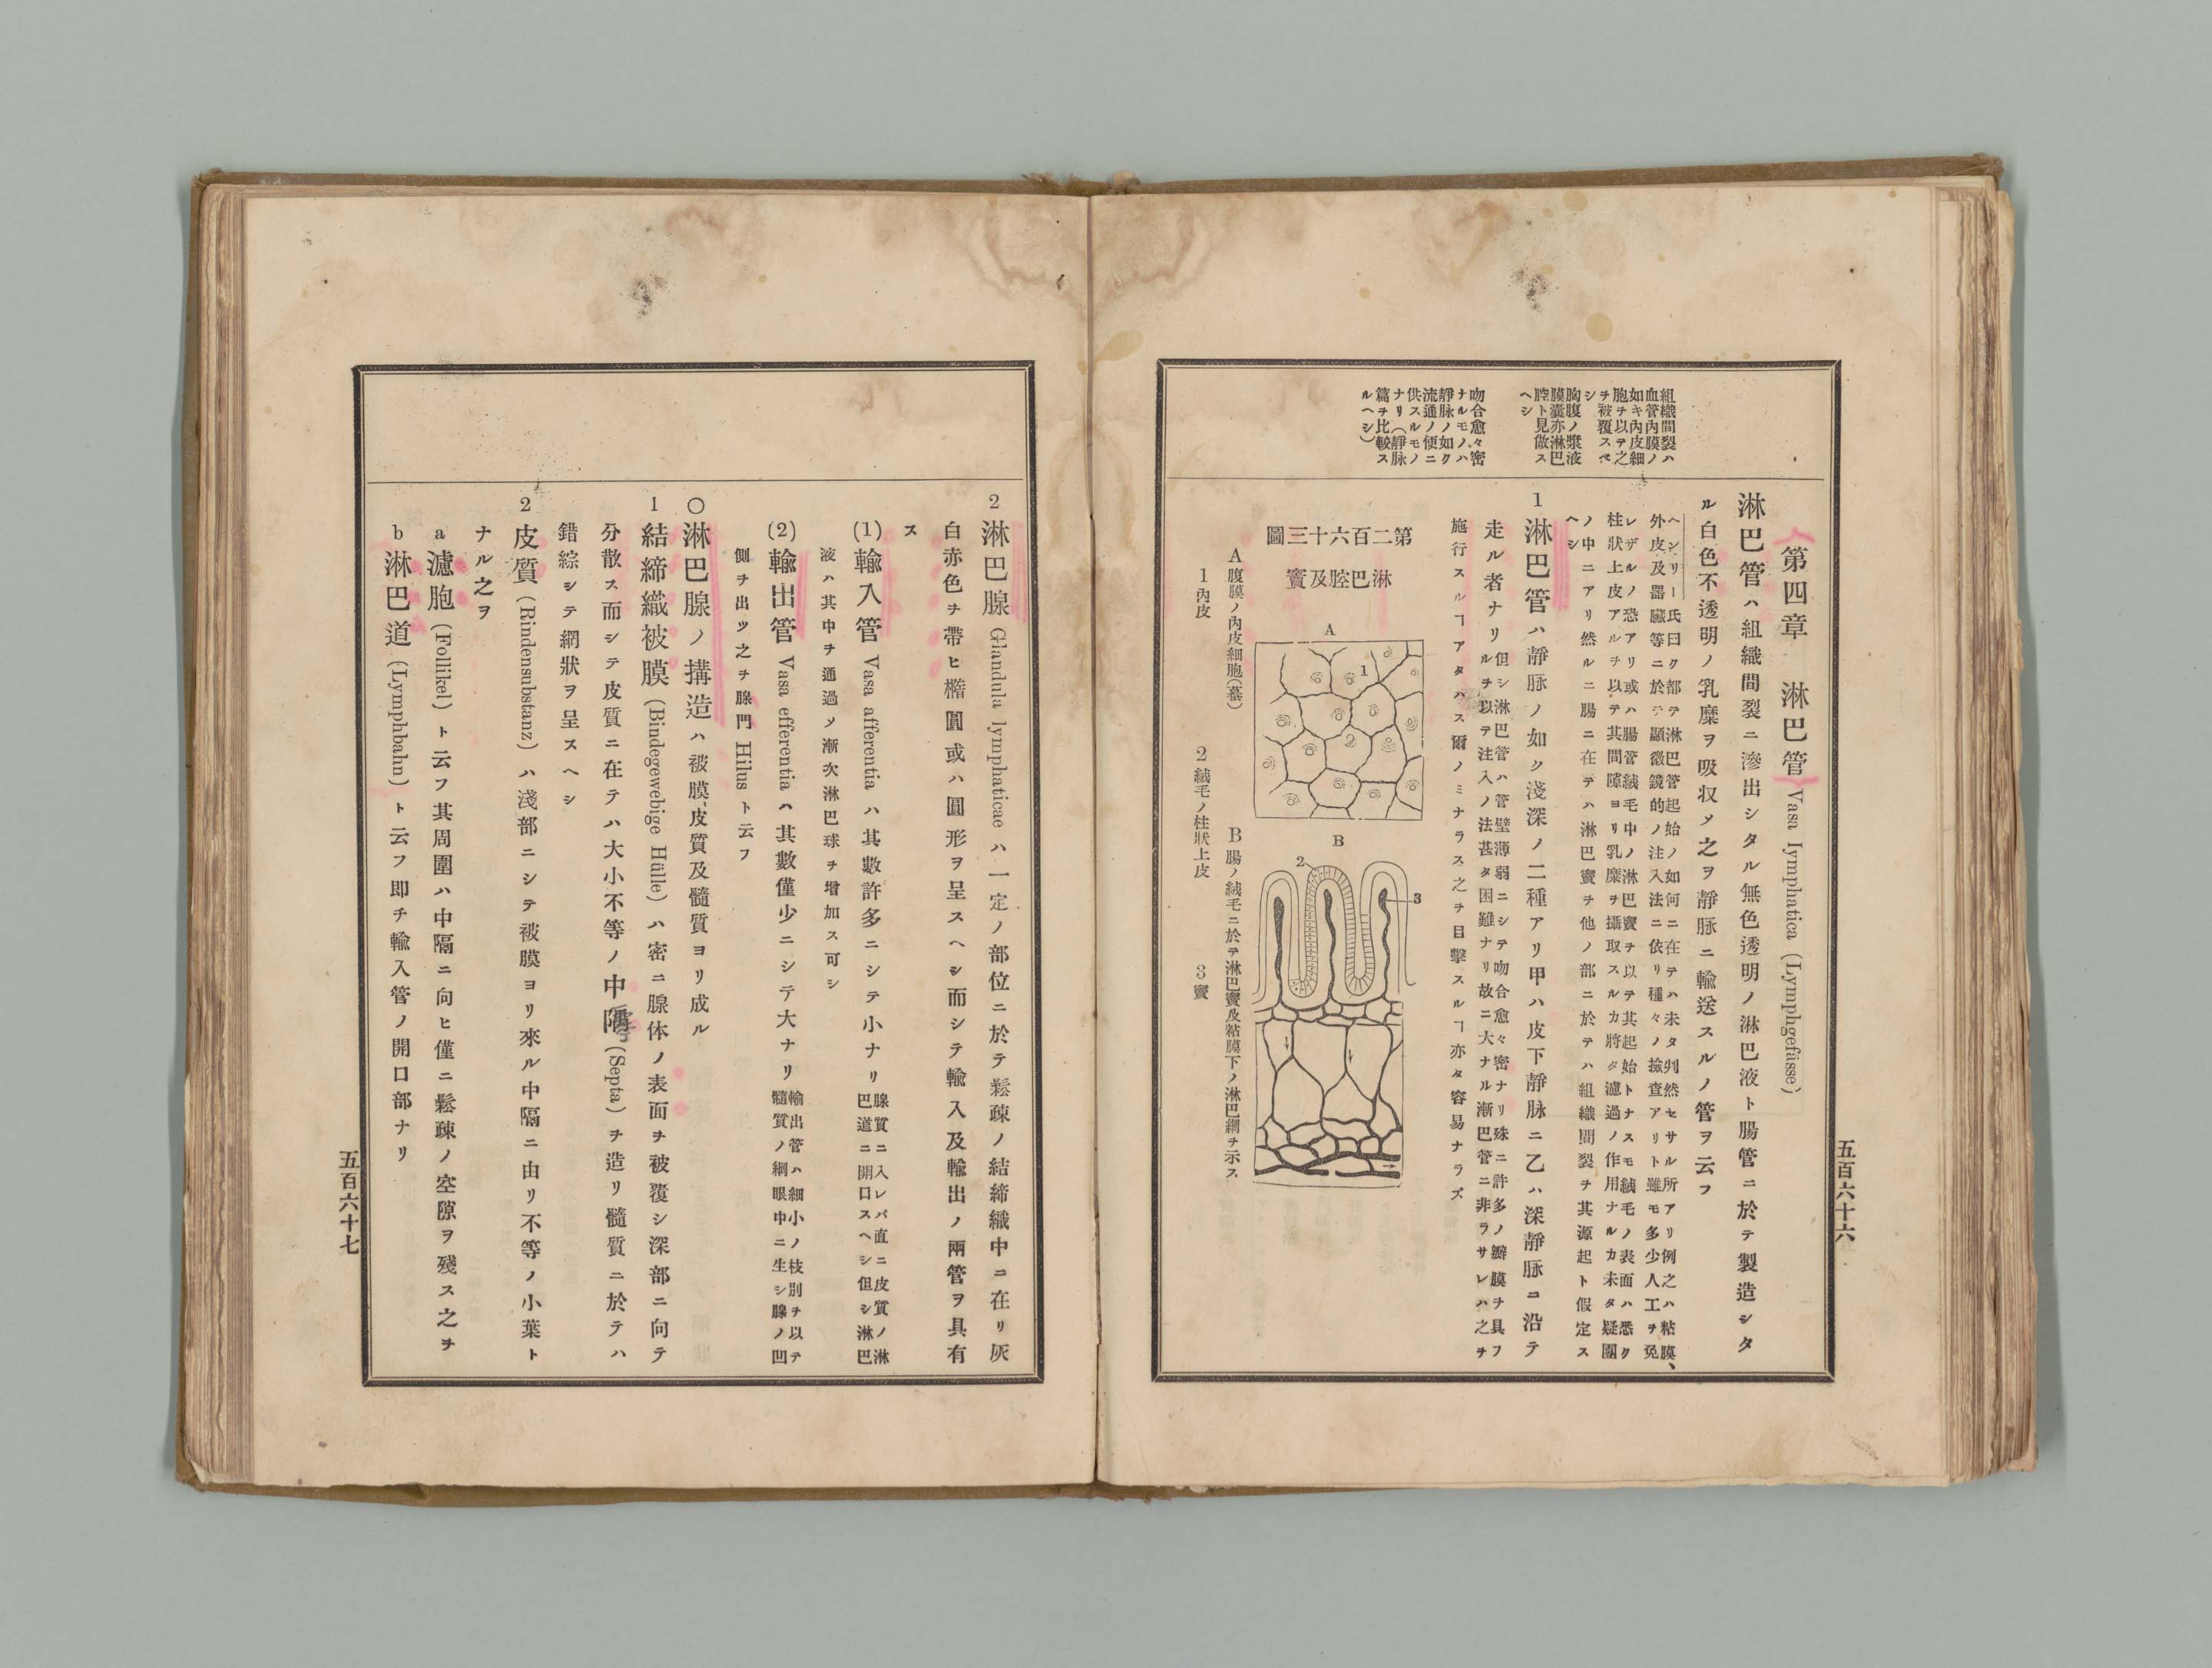 組織間裂ハ
血管內膜ノ
如キ內皮細
胞チ以テ之
チ被覆スベ
シ
胸腹ノ漿液
膜囊亦淋巴
腔ト見做ス
ヘシ
吻合愈々密
ナルモノハ
靜脉ノ如ク
流通ノ便ニ
供スルモノ
ナリ(靜脉
篇チ比較ス
ルヘシ)
第四章 淋巴管 Vasa lymphatica (Lymphgefässe)
淋巴管ハ組織間裂ニ滲出シタル無色透明ノ淋巴液ト腸管ニ於テ製造シタ
ル白色不透明ノ乳糜ヲ吸収メ之ヲ靜脉ニ輸送スルノ管ヲ云フ
ヘンリー氏曰ク都テ淋巴管起始ノ如何ニ在テハ未タ判然セサル所アリ例之ハ粘膜、
外皮及器臟等ニ於テ顯微鏡的ノ注入法ニ依リ種々ノ撿査アリト雖モ多少人工ヲ免
レザルノ恐アリ或ハ腸管絨毛中ノ淋巴竇チ以テ其起始トナスモ絨毛ノ表面ハ悉ク
柱狀上皮アルチ以テ其間隙ヨリ乳糜ヲ攝取スルカ將タ濾過ノ作用ナルカ未タ疑團
ノ中ニアリ然ルニ腸ニ在テハ淋巴竇チ他ノ部ニ於テハ組織間裂チ其源起ト假定ス
ヘシ
1 淋巴管ハ靜脉ノ如ク淺深ノ二種アリ甲ハ皮下靜脉ニ乙ハ深靜脉ニ沿テ
走ル者ナリ但シ淋巴管ハ管壁薄弱ニシテ吻合愈々密ナリ殊ニ許多ノ瓣膜チ具フ
ルチ以テ注入ノ法甚タ困難ナリ故ニ大ナル漸巴管ニ非ラサレハ之チ
施行スルヿアタハス爾ノミナラス之チ目擊スルヿ亦タ容易ナラズ
第二百六十三圖
淋巴腔及竇
A
1
2
B
2
3
A 腹膜ノ內皮細胞(蟇)
1 內皮
2 絨毛ノ柱狀上皮
B 腸ノ絨毛ニ於テ淋巴竇及粘膜下ノ淋巴網チ示ス
3 竇
五百六十六
2 淋巴腺 Glandula lymphaticae ハ一定ノ部位ニ於テ鬆疎ノ結締織中ニ在リ灰
白赤色チ帶ヒ橢圓或ハ圓形ヲ呈スヘシ而シテ輸入及輸出ノ兩管ヲ具有
ス
(1) 輸入管 Vasa afferentia ハ其數許多ニシテ小ナリ腺質ニ入レバ直ニ皮質ノ淋
巴道ニ開口スヘシ但シ淋巴
液ハ其中チ通過メ漸次淋巴球チ增加ス可シ
(2) 輸出管 Vasa efferentia ハ其數僅少ニシテ大ナリ輸出管ハ細小ノ枝別チ以テ
髓質ノ網眼中ニ生シ腺ノ凹
側チ出ツ之チ腺門 Hilus ト云フ
○淋巴腺ノ搆造ハ被膜、皮質及髓質ヨリ成ル
1 結締織被膜 (Bindegewebige Hülle) ハ密ニ腺体ノ表面チ被覆シ深部ニ向テ
分散ス而シテ皮質ニ在テハ大小不等ノ中隔 (Septa) チ造リ髓質ニ於テハ
錯綜シテ網狀ヲ呈スヘシ
2 皮質 (Rindensubstanz) ハ淺部ニシテ被膜ヨリ來ル中隔ニ由リ不等ノ小葉ト
ナル之ヲ
a 濾胞 (Follikel) ト云フ其周圍ハ中隔ニ向ヒ僅ニ鬆疎ノ空隙ヲ殘ス之チ
b 淋巴道 (Lymphbahn) ト云フ即チ輸入管ノ開口部ナリ
五百六十七